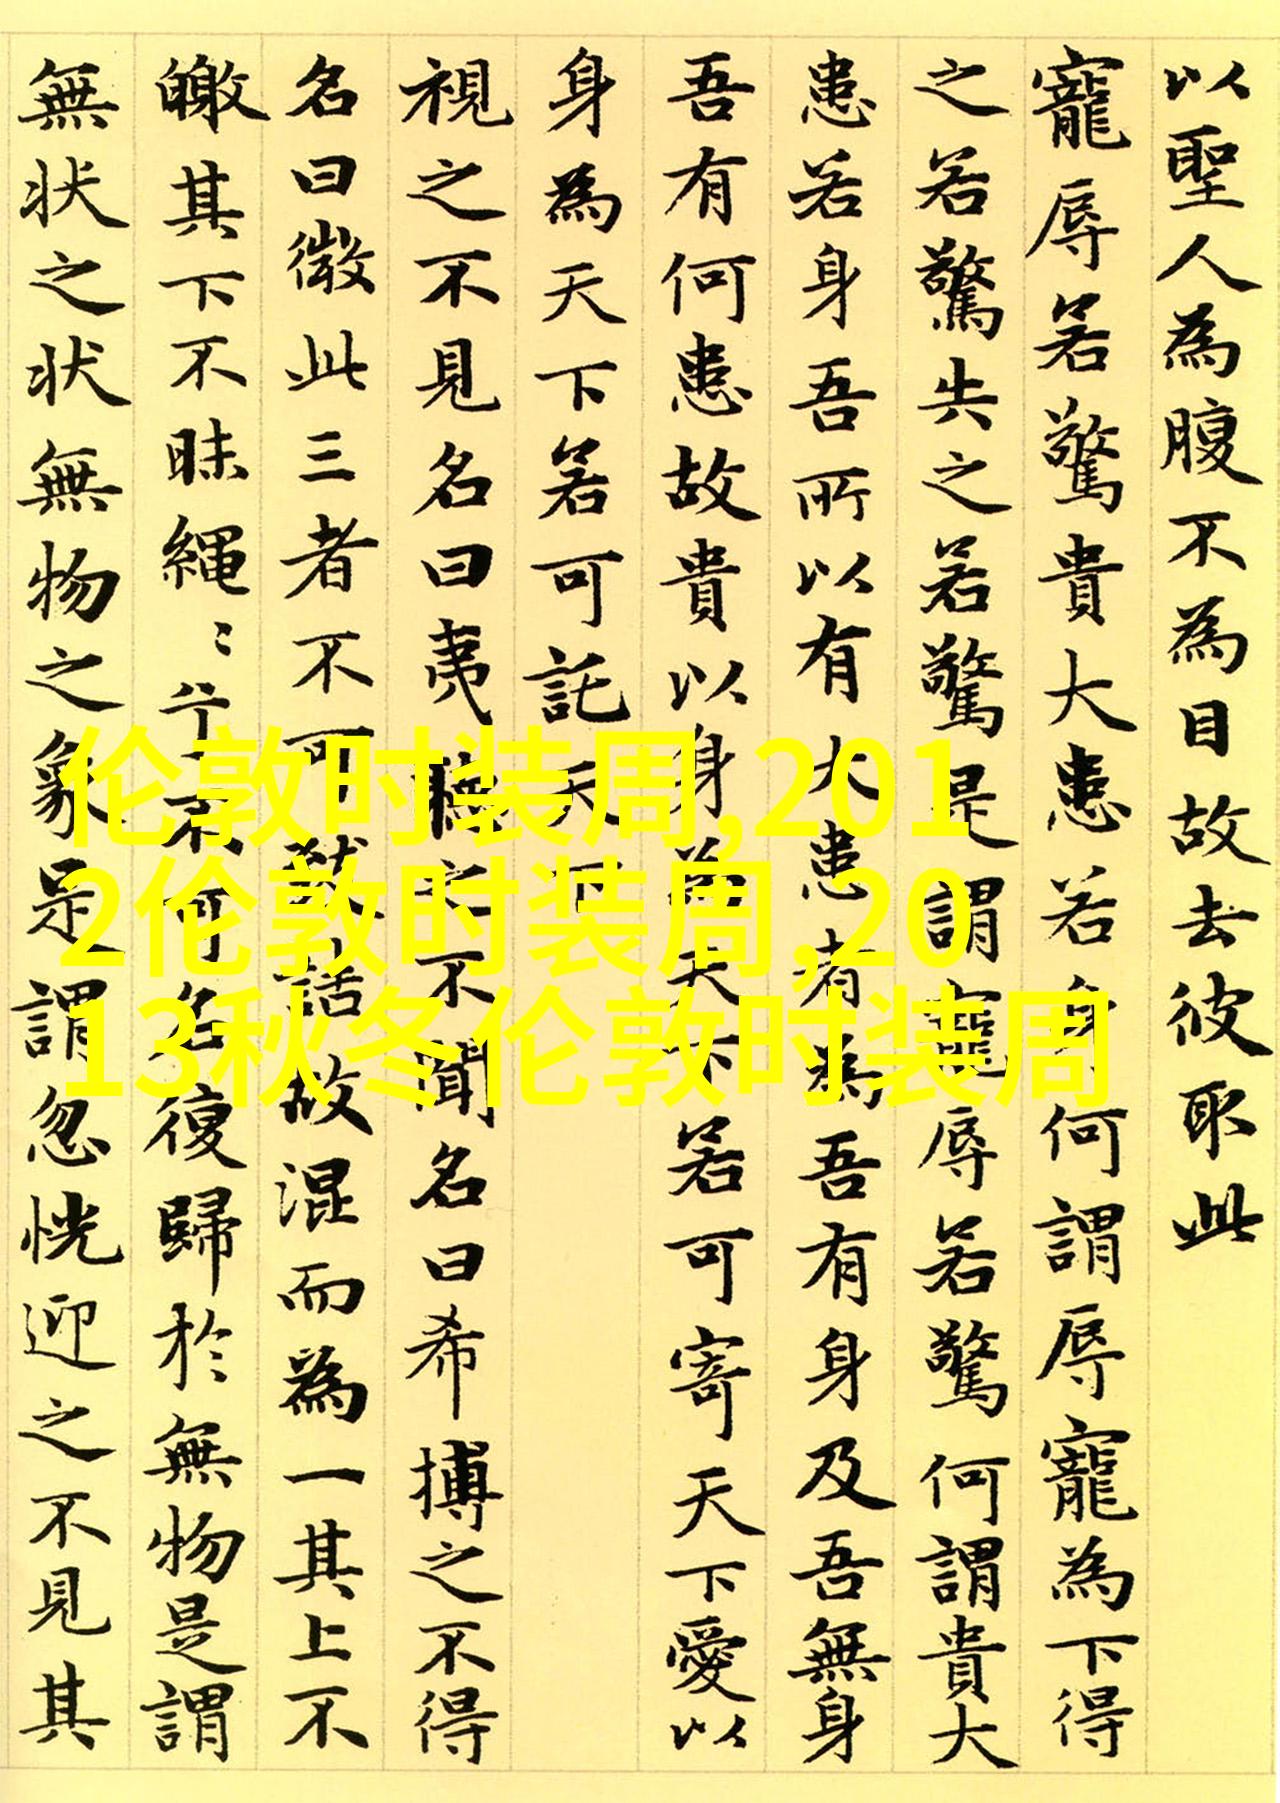 以聖人為腹不為目故去彼取此
寵辱若驚貴大患若身何謂辱寵為下得
之若驚失之若驚是謂寵辱若驚何謂貴大
患若身吾所以有大患者為吾有身及吾無身
吾有何患故貴以身為天下若可寄天下愛以
身為天下若可託天下
視之不見名曰夷聽之不聞名曰希搏之不得
名曰微此三者不可致詰故混而為一其上不
皦其下不昧繩〻兮不可名復歸於無物是謂
無状之状無物之象是謂忽恍迎之不見其
伦敦时装周,201
2伦敦时装周,20
13秋冬伦敦时装周